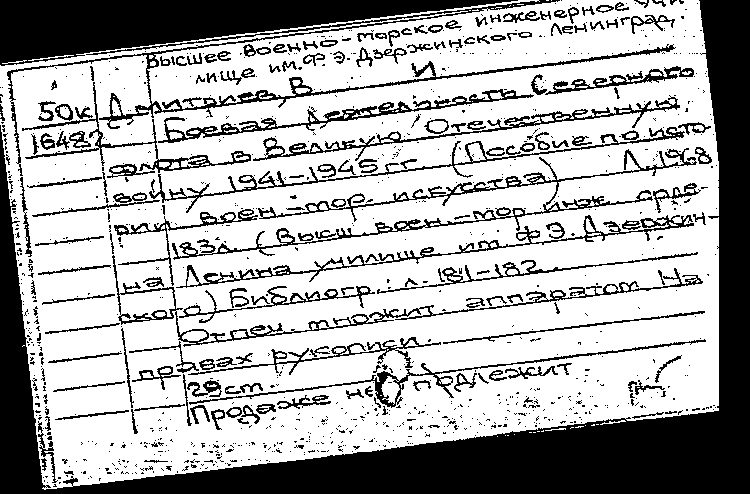 Высшее военно-морское инженерное учи
лище им. Ф. Э. Дзержинского. Ленинград.
50к Дмитриев, В И.
16482 Боевая деятельность Северного
флота в Великую Отечественную
войну 1941-1945 гг. (Пособие по исто
рии воен.-мор. искусства) Л., 1968
183л. (Высш воен.-мор инж орде-
на Ленина училище им Ф.Э. Дзержин-
ского) Библиогр.: л. 181-182
Отпеч. множит. аппаратом На
правах рукописи.
29см.
Продаже не подлежит.